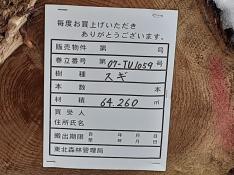 毎度お買上げいただき
ありがとうございます。
販売物件 第 号
巻立番号 第07-TU1059号
樹種 スギ
本数 本
材積 64.260 ㎥
買受人
住所氏名
搬出期限 自 年 月 日
至 年 月 日
東北森林管理局